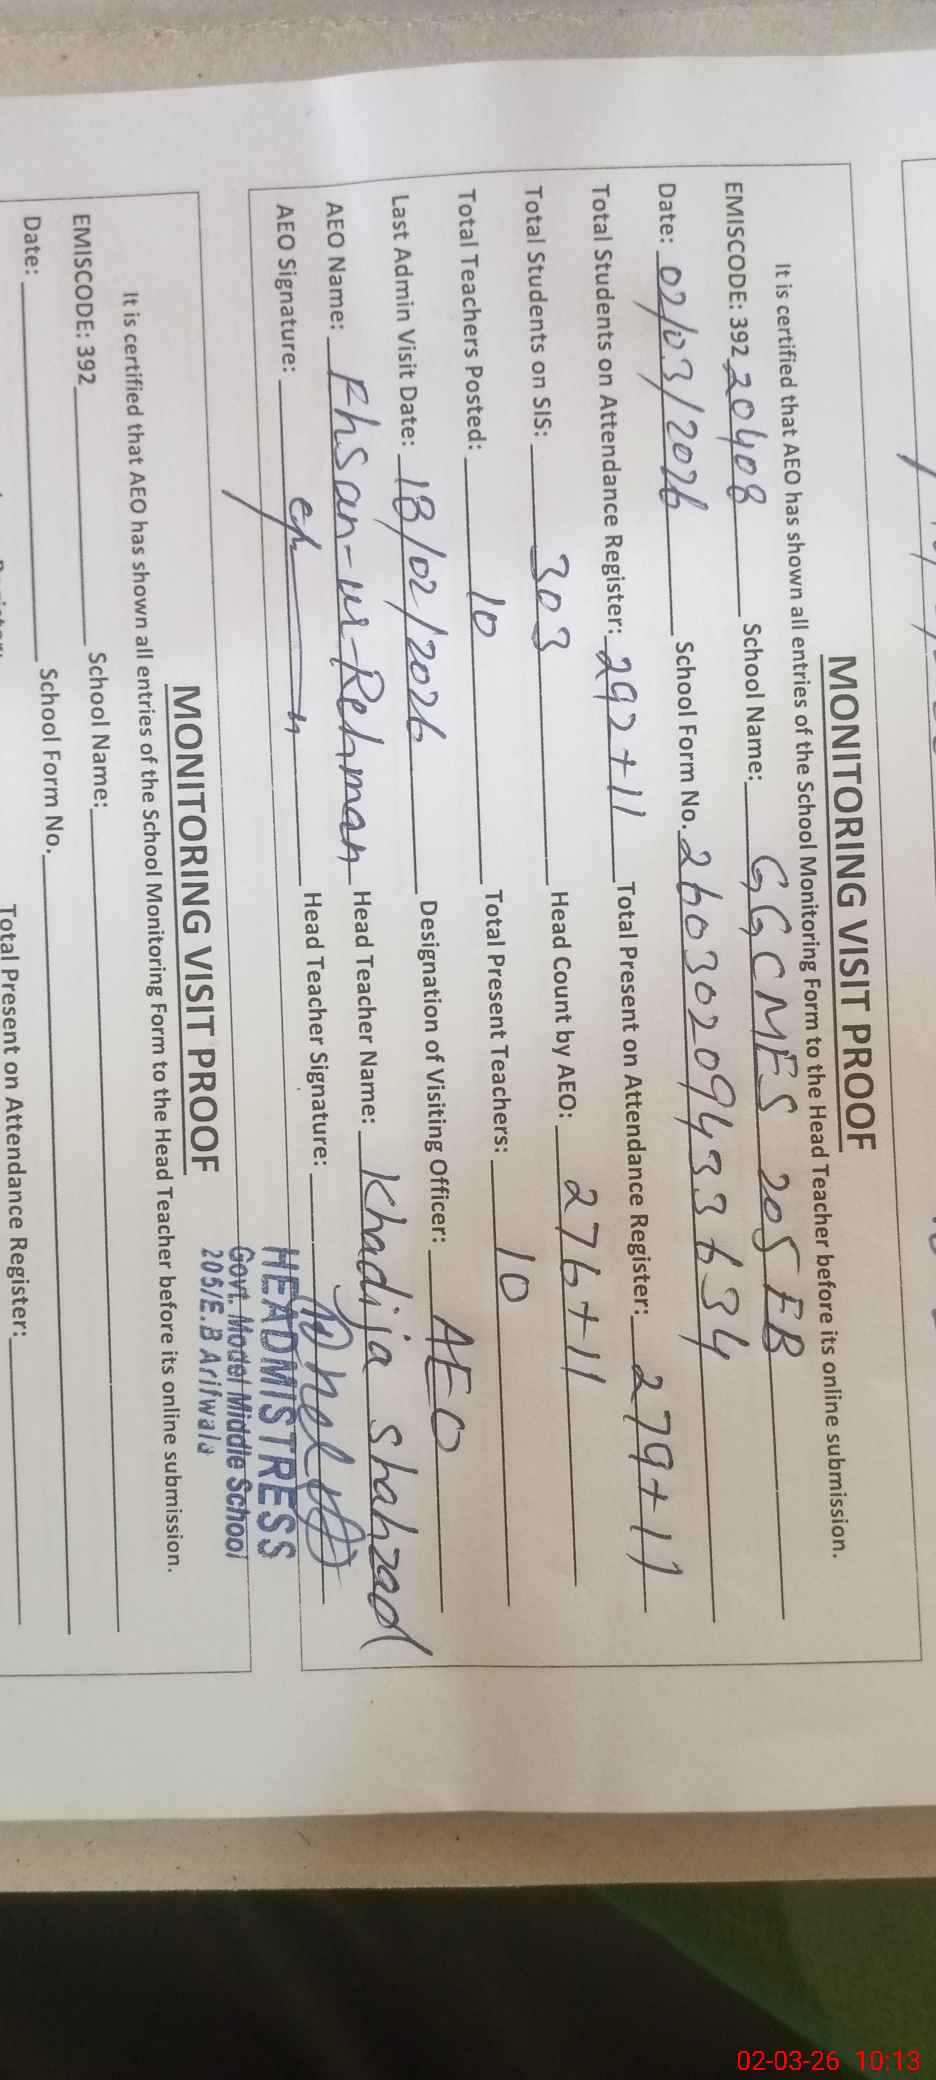 MONITORING VISIT PROOF
It is certified that AEO has shown all entries of the School Monitoring Form to the Head Teacher before its online submission.
EMISCODE: 392 20408 School Name: GGCMES 205 EB
Date: 02/03/2026 School Form No. 26030209433634
Total Students on Attendance Register: 292+11 Total Present on Attendance Register: 279+11
Total Students on SIS: 303 Head Count by AEO: 276+11
Total Teachers Posted: 10 Total Present Teachers: 10
Last Admin Visit Date: 18/02/2026 Designation of Visiting Officer: AEO
AEO Name: Ehsan-ur-Rehman Head Teacher Name: Khadija Shahzad
AEO Signature: Head Teacher Signature:
HEADMISTRESS
Govt. Model Middle School
205/E.B Arifwala
MONITORING VISIT PROOF
It is certified that AEO has shown all entries of the School Monitoring Form to the Head Teacher before its online submission.
EMISCODE: 392 School Name:
Date: School Form No.
Total Present on Attendance Register:
02-03-26 10:13